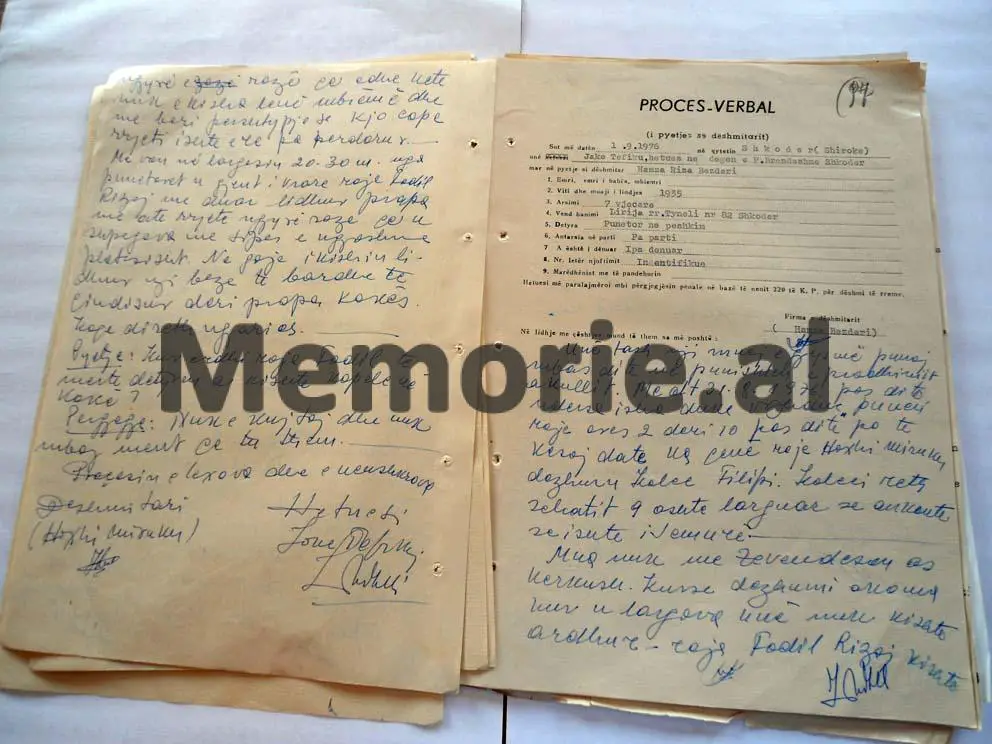 ngjyrë roze ça edhe kete
nuk e kisha lenë mbienë dhe
me bari persehypje se kjo cope
rrjeti ishte ere pa perdorur.
Me von në largesin 20-30 m. nga
punetoret u gjent i vrare roje Fadil
Rizaj me duar lidhur prapa
me ate rrjete ngjyre roze ça u
shpegova me siper e
. Ne goje i kishin li-
dhur nji beze të bardhe të
deri prapa kokës.
Pyetje: Kur erdhi roja Fadil të
merte detyren a kishte kapele në
kokë?
Pergjegje: Nuk e kujtoj dhe nuk
mbaj ment ça ta them.
Procesin e lexova dhe e nenshkrova
Deshmitari
Hetuesi
(Hoxhi Miruku)
Memorie.al
(97)
PROCES-VERBAL
(i pyetjes se dëshmitarit)
Sot më datën 1.9.1976 në qytetin Shkoder( Shiroke)
unë Jake Tefiku, hetues ne degen e P.Brendeshme Shkoder
mar në pyetje si dëshmitar Hanna Rina Bezdari
1. Emri, emri i babës, mbiemri
2. Viti dhe muaji i lindjes 1935
3. Arsimi 7 vjecare
4. Vend banimi Lirija rr.Tyneli nr 82 Shkoder
5. Detyra Punetor ne peshkim
6. Antarsia në parti Pa parti
7 A është i dënuar Ipa denuar
8. Nr. letër njoftimit Indentifikue
9. Marëdhëniet me të pandehurin
Hetuesi më paralajmëroi mbi përgjegjësin penale në bazë të nenit 220 të K. P. për dëshmi të rreme.
Firma e dëshmitarit
( Hanna Bezdari)
Në lidhje me çështjen mund të them sa më poshtë :
Una tash nji muaj e gjysmë punoj
mbas dite në punishten e prodhimit
akullit. Me dt 31.8.1976 pas dite
ndersa isha duke punuar
roje ores 2 deri 10 pas dite po të
kesaj date ka qenë roje Hoxhi Miruku
dezhurn Kolec Filipi. Koleci rreth
sehatit 9 oshte larguar se ankonte
se ishte i semurë
Mua nuk me zevendeson as
kerkush. Kurse dezhurni akoma
kur u largova unë nuk kishte
ardhur – roja Fadil Rizaj kishte